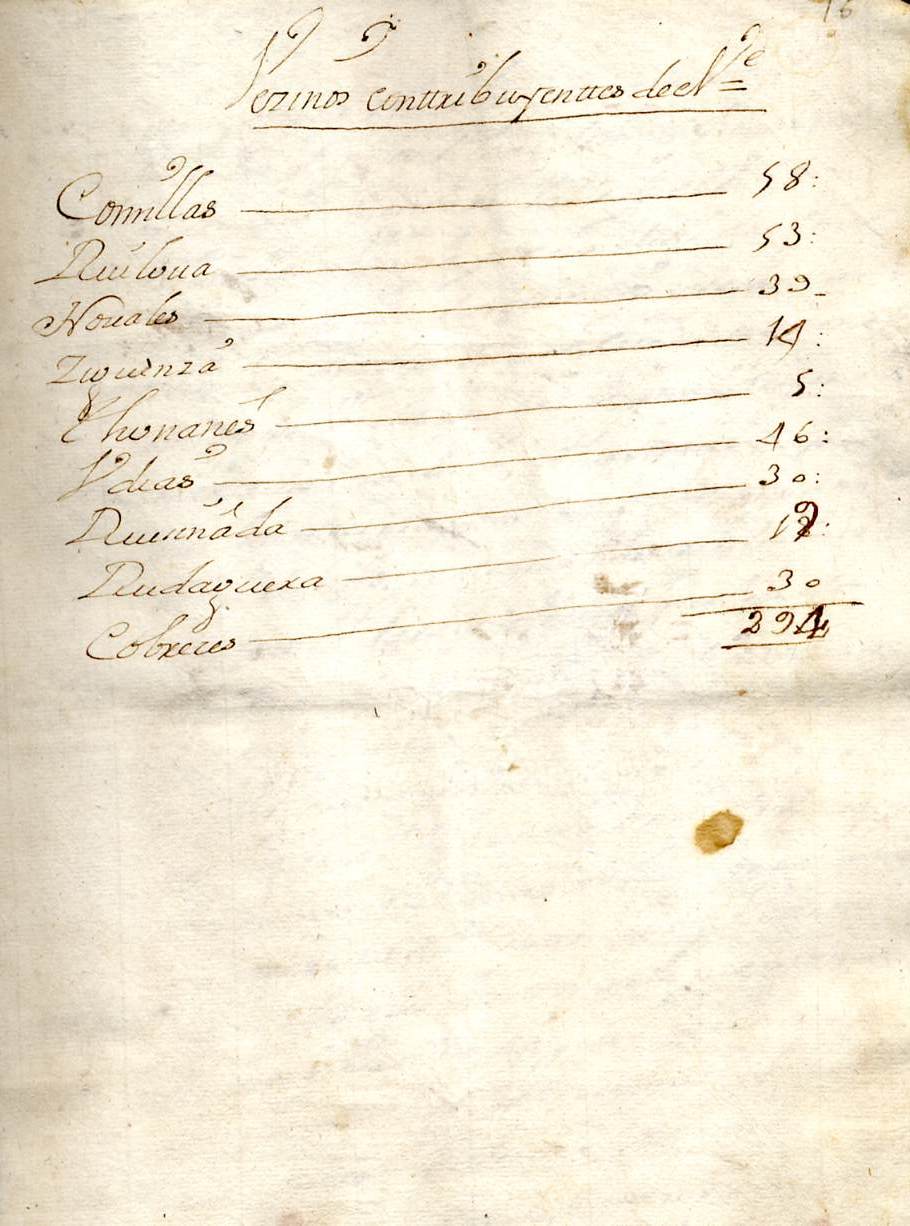 16
Vezinos Conttribuyenttes de el Ve =
Comillas 58:
Ruiloua 53:
Nouales 39
Ziguenza 14:
Thonanes 5:
Vdias 46:
Ruiseñada 30:
Rudaguera 19:
Cobreces 30
294